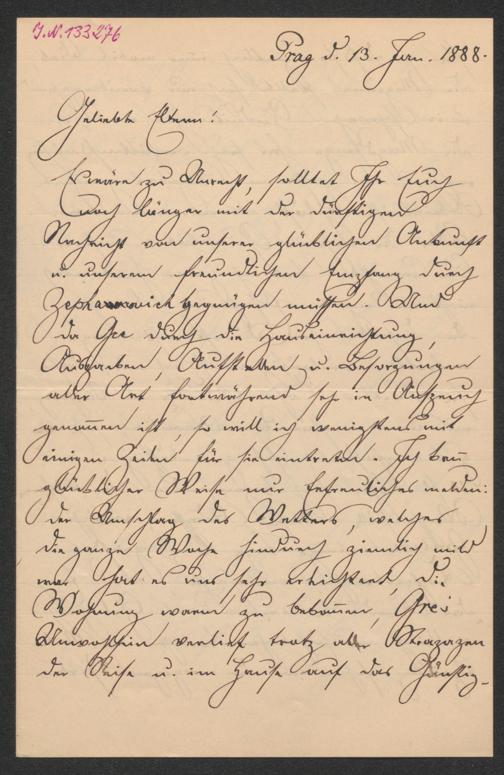 J.N. 133276
Prag d. 13. Jan. 1888.
Geliebte Eltern!
Es wäre zu Unrecht, solltet Ihr Euch
noch länger mit der dürftigen
Nachricht von unserer glücklichen Ankunft
u. unserem freundlichen Empfang durch
Zepharovich begnügen müssen. Und
da Gre durch die Hauseinrichtung,
Ausgaben, Aufstellen u. Besorgungen
aller Art fortwährend sehr in Anspruch
genommen ist, so will ich wenigstens mit
einigen Zeilen für sie eintreten. Ich kann
glücklicher Weise nur Erfreuliches melden:
der Umschlag des Wetters, welches
die ganze Woche hindurch ziemlich mild
war hat es uns sehr erleichtert, die
Wohnung warm zu bekommen, Gre's
Unwohlsein verlief trotz aller Strapazen
der Reise u. im Hause auf das Günstig-